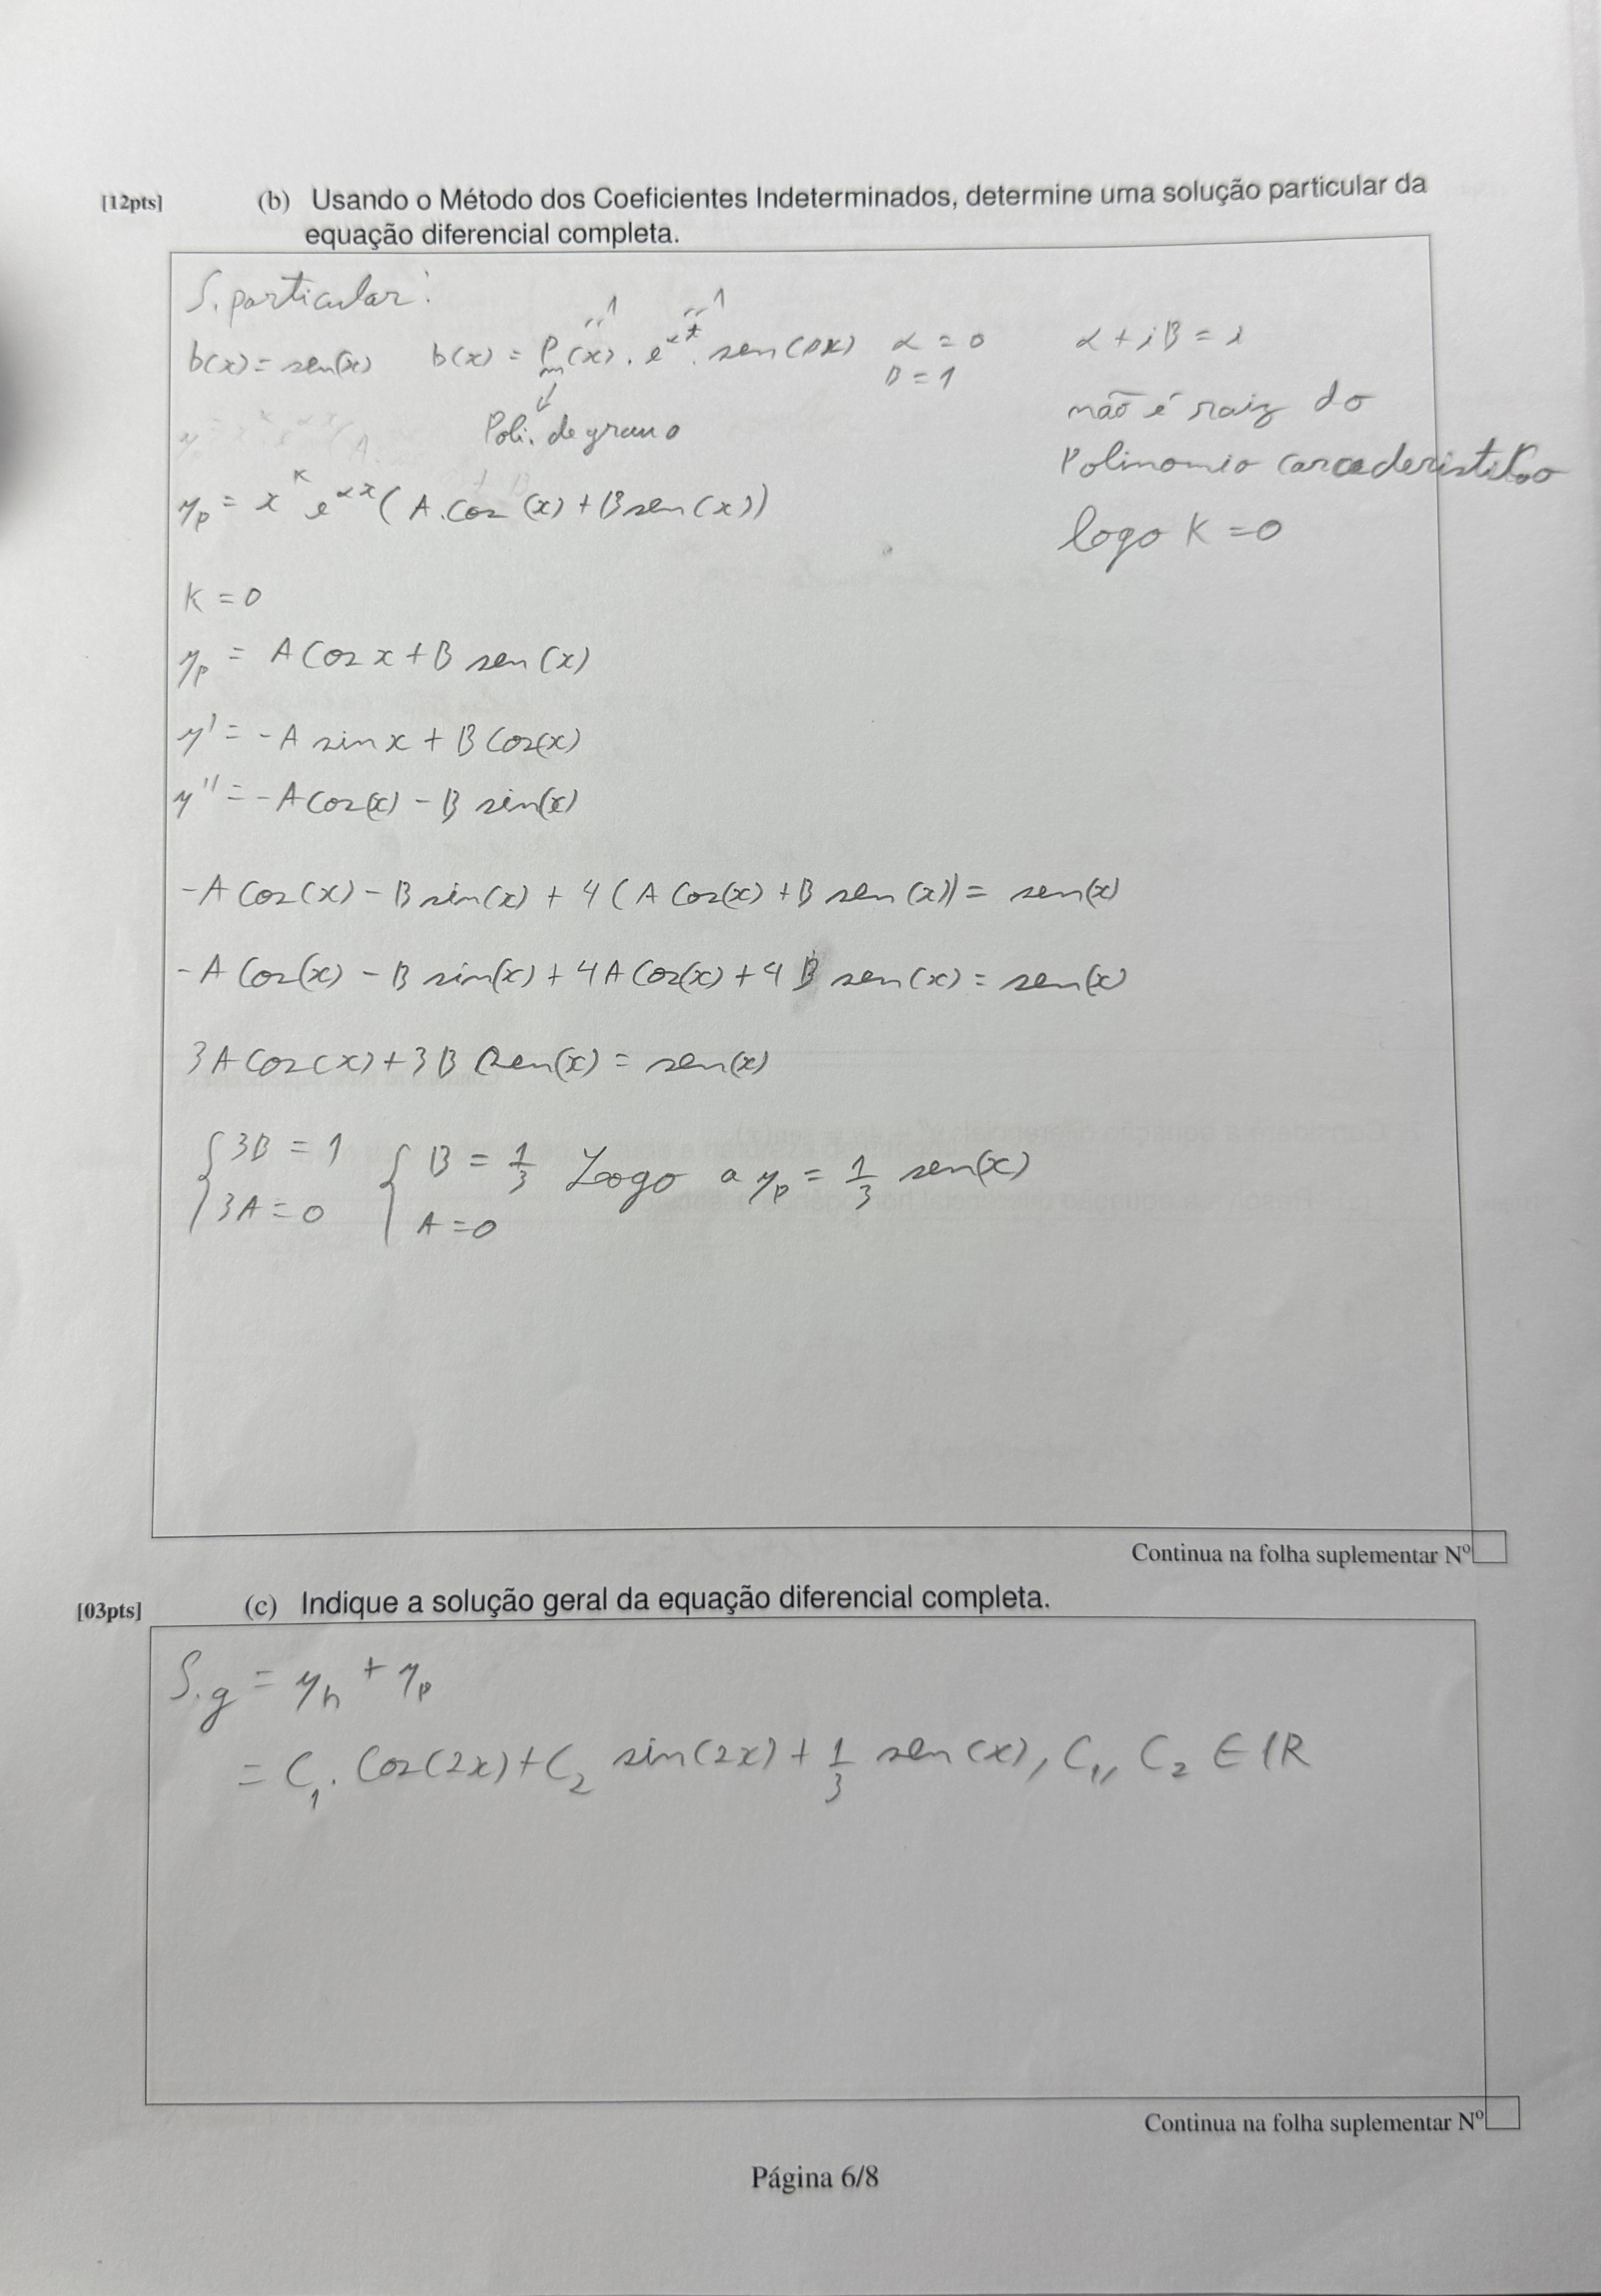 [12pts] (b) Usando o Método dos Coeficientes Indeterminados, determine uma solução particular da
equação diferencial completa.
S. particular:
b(x) = sen(x) b(x) = Pm(x) . e^αx . sen(βx) α = 0 α + iβ = i
"1 "1
β = 1
↓
Poli. de grau 0
não é raiz do
Polinomio caracederistico
logo K = 0
yp = x^k e^αx (A.Cos(x) + B sen(x))
K = 0
yp = A Cos x + B sen(x)
y' = -A sin x + B Cos(x)
y'' = -A Cos(x) - B sin(x)
-A Cos(x) - B sin(x) + 4 (A Cos(x) + B sen(x)) = sen(x)
-A Cos(x) - B sin(x) + 4A Cos(x) + 4B sen(x) = sen(x)
3A Cos(x) + 3B sen(x) = sen(x)
{ 3B = 1 { B = 1/3 Logo a yp = 1/3 sen(x)
3A = 0 A = 0
Continua na folha suplementar Nº
[03pts] (c) Indique a solução geral da equação diferencial completa.
S.g = yh + yp
= C1 . Cos(2x) + C2 sin(2x) + 1/3 sen(x), C1, C2 ∈ IR
Continua na folha suplementar Nº
Página 6/8